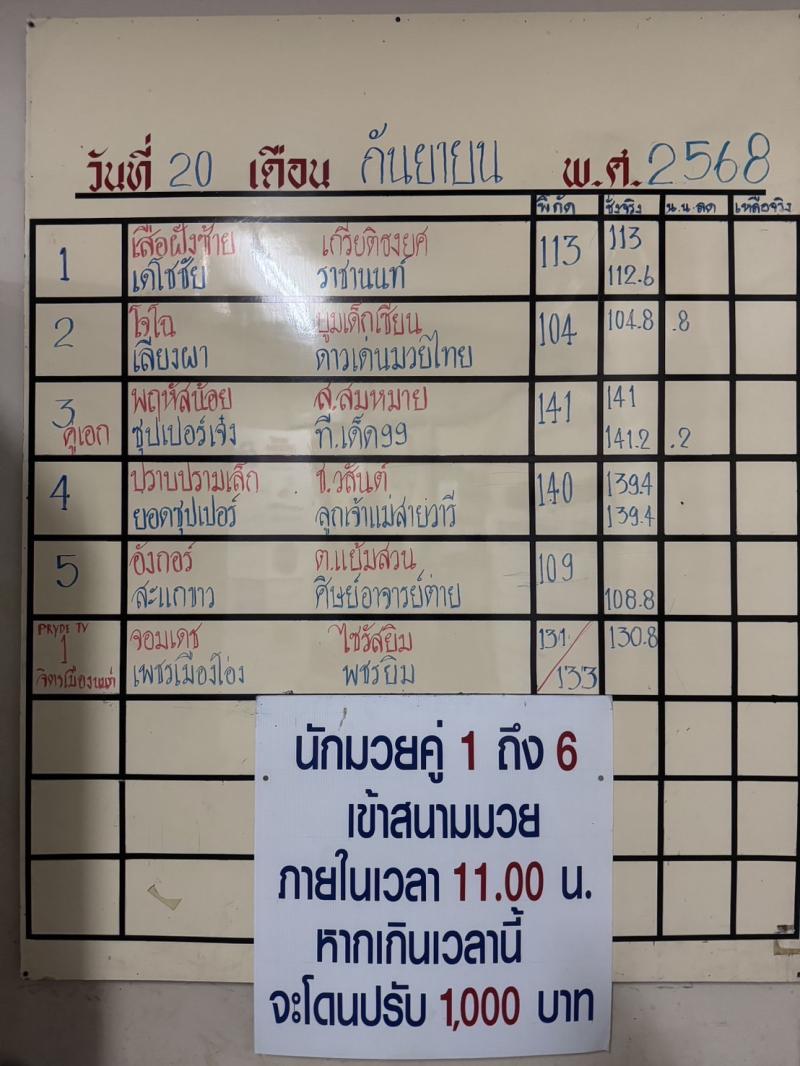 วันที่ 20 เดือน กันยายน พ.ศ. 2568
พิกัด ชั่งจริง น.น.ลด เหลือจริง
1 เสือฝั่งซ้าย เกรียติชงยศ 113 113
เดโชชัย ราชานนท์ 112.6
2 โจโฉ บูมเด็กเซียน 104 104.8 .8
เลียงผา ดาวเด่นมวยไทย
3 พฤหัสน้อย ส.สมหมาย 141 141
คู่เอก ซุปเปอร์เจ๋ง ที.เด็ด99 141.2 .2
4 ปราบปรามเล็ก ช.วสันต์ 140 139.4
ยอดซุปเปอร์ ลูกเจ้าแม่สายวารี 139.4
5 อังกอร์ ต.แย้มสวน 109
สะแกขาว ศิษย์อาจารย์ต่าย 108.8
PRYDE TV 1 จอมเดช ไชรัสยิม 131/ 130.8
จิตรเมืองนนท์ เพชรเมืองโอ่ง พชรยิม 133
นักมวยคู่ 1 ถึง 6
เข้าสนามมวย
ภายในเวลา 11.00 น.
หากเกินเวลานี้
จะโดนปรับ 1,000 บาท